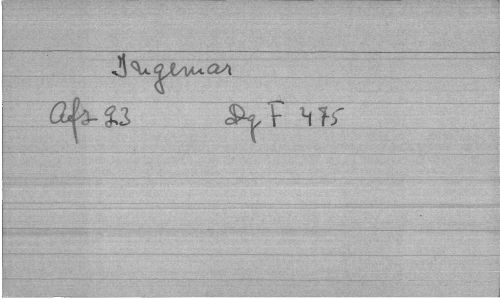 Ingemar
Afs 93 Dg F 475